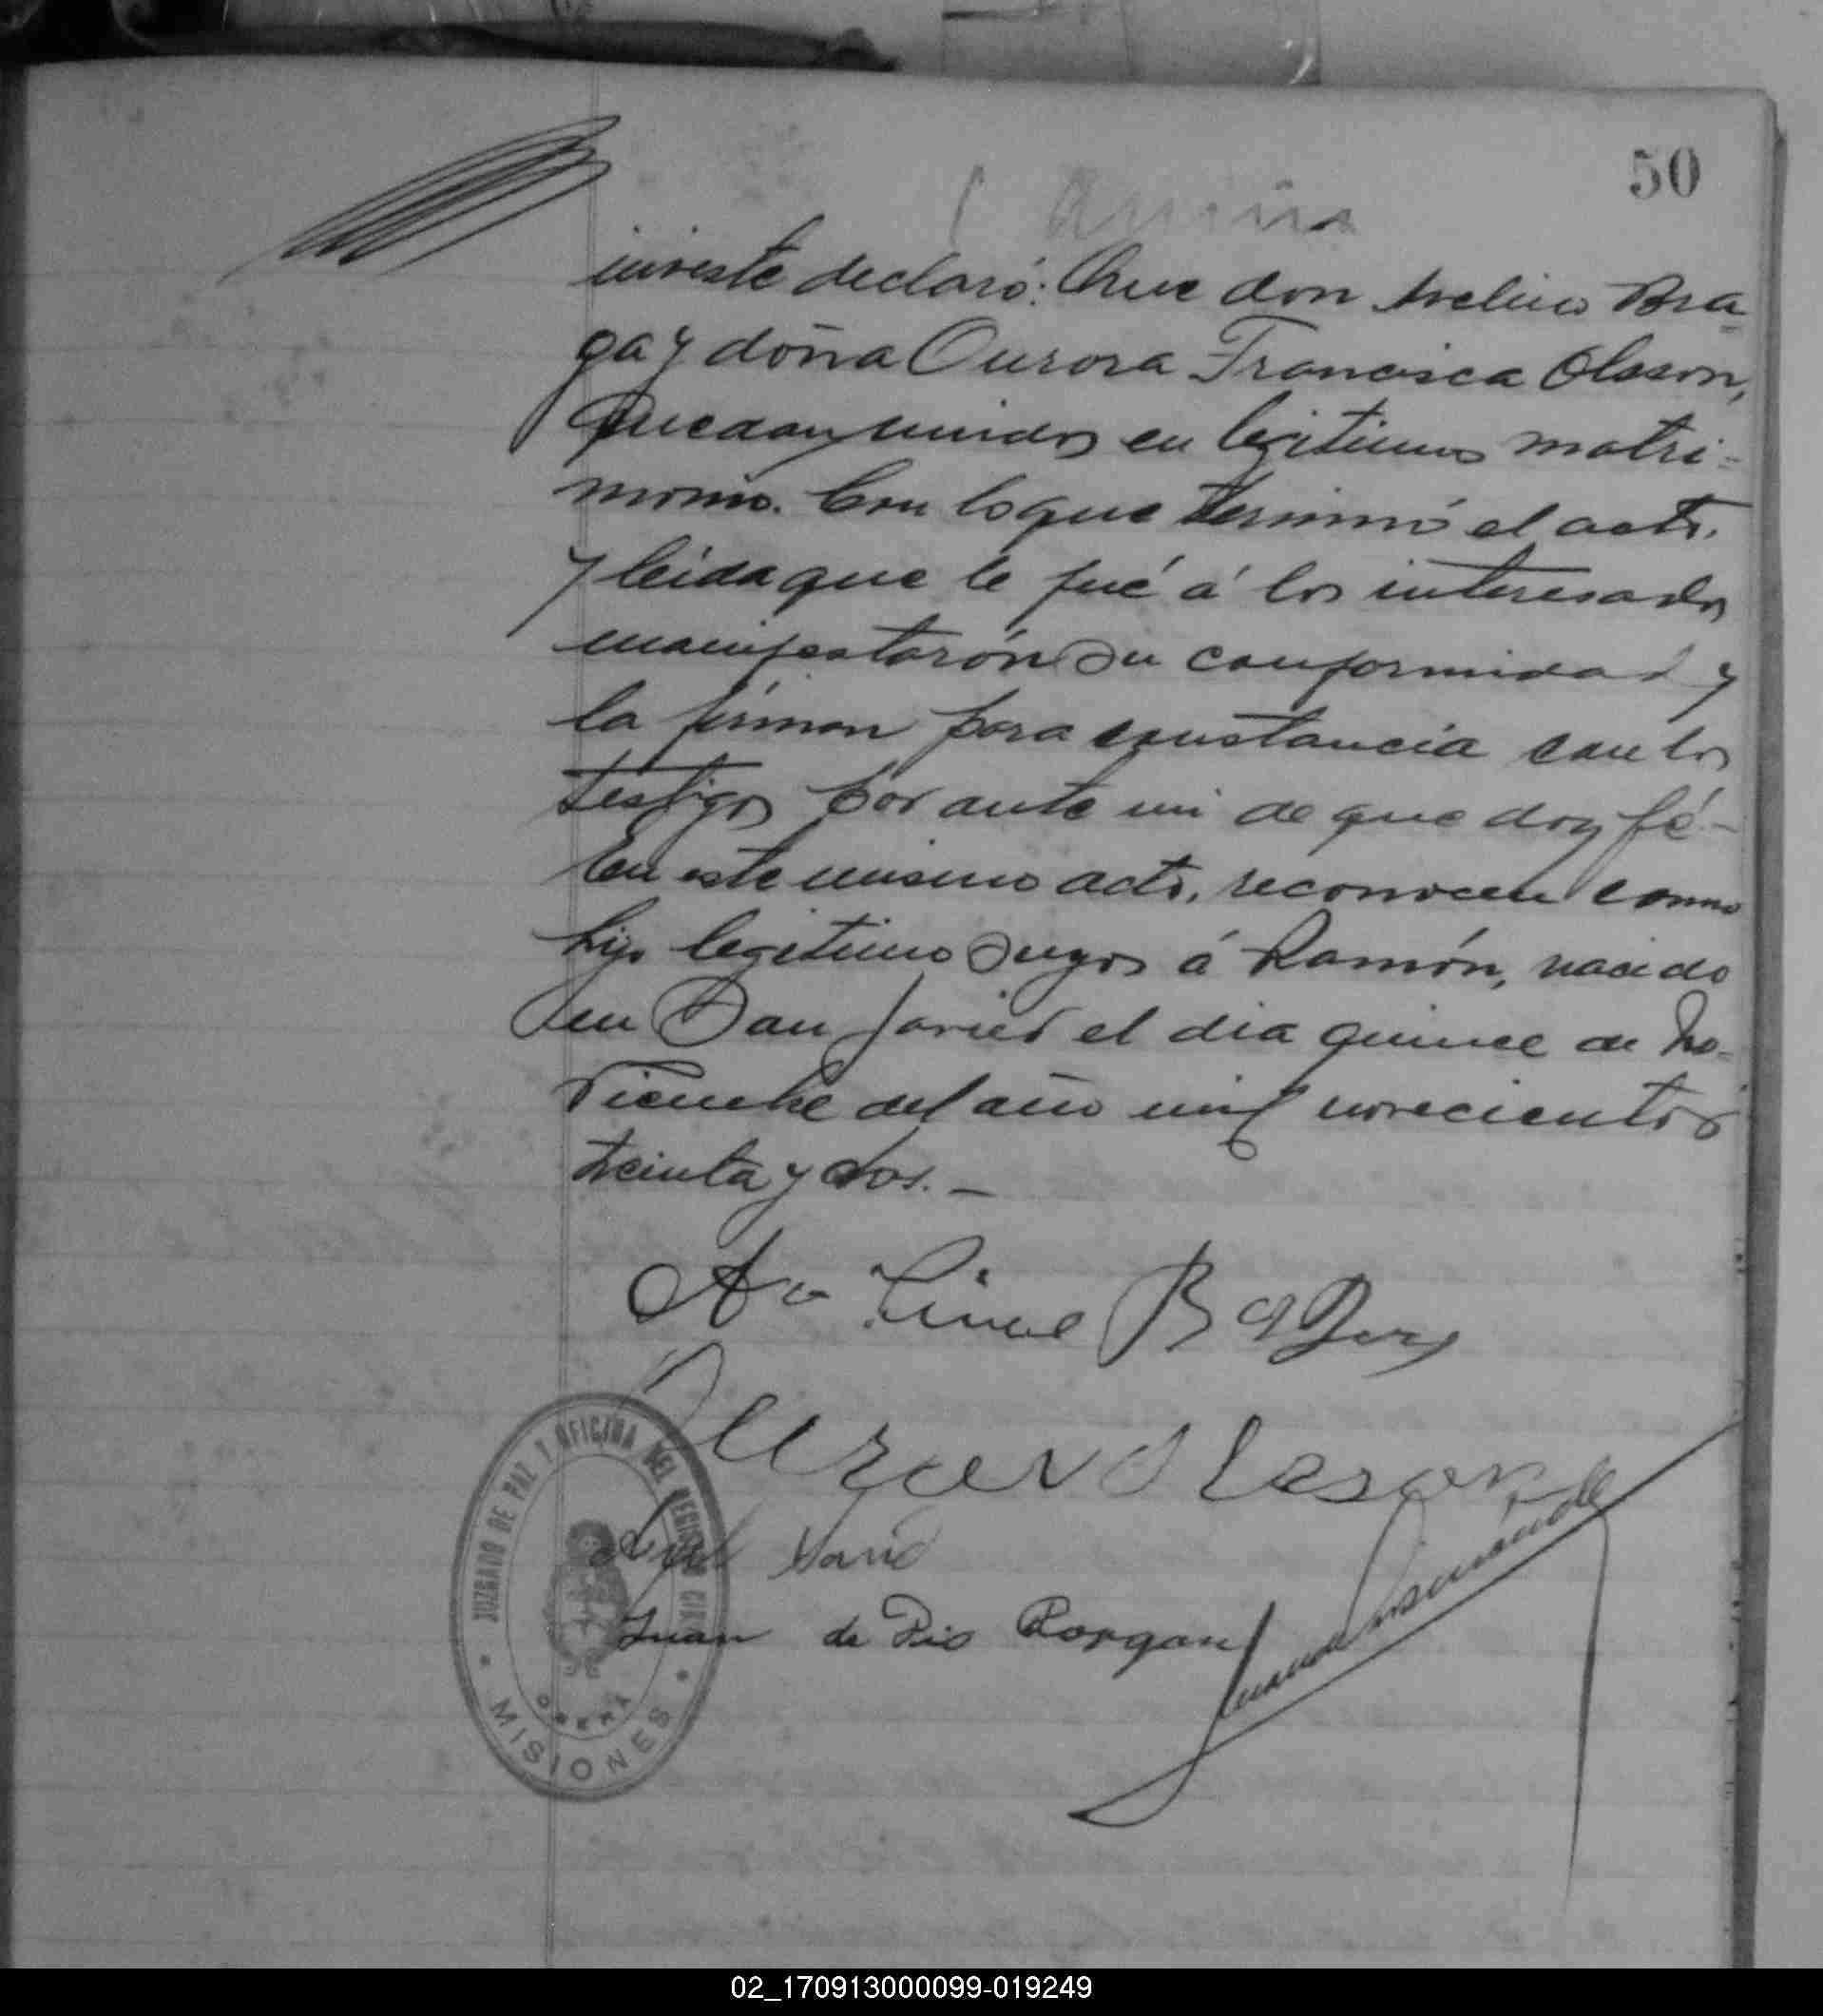 50
inviste declaró: Que don Avelino Bra-
ga y doña Aurora Francisca Olsson,
quedan unidos en legitimo matri-
monio. Con lo que terminó el acto.
y leida que le fué á los interesados
manifestarón su conformidad y
la firman para constancia con los
testigos por ante mi de que doy fé-
En este mismo acto, reconocen como
hijo legitimo suyos á Ramón, nacido
en San Javier el dia quince de No-
viembre del año mil novecientos
treinta y dos.-
Avelino Braga
Olsson
JUZGADO DE PAZ Y OFICINA DEL REGISTRO CIVIL
OBERÁ
MISIONES
Juan de Dio
02_170913000099-019249